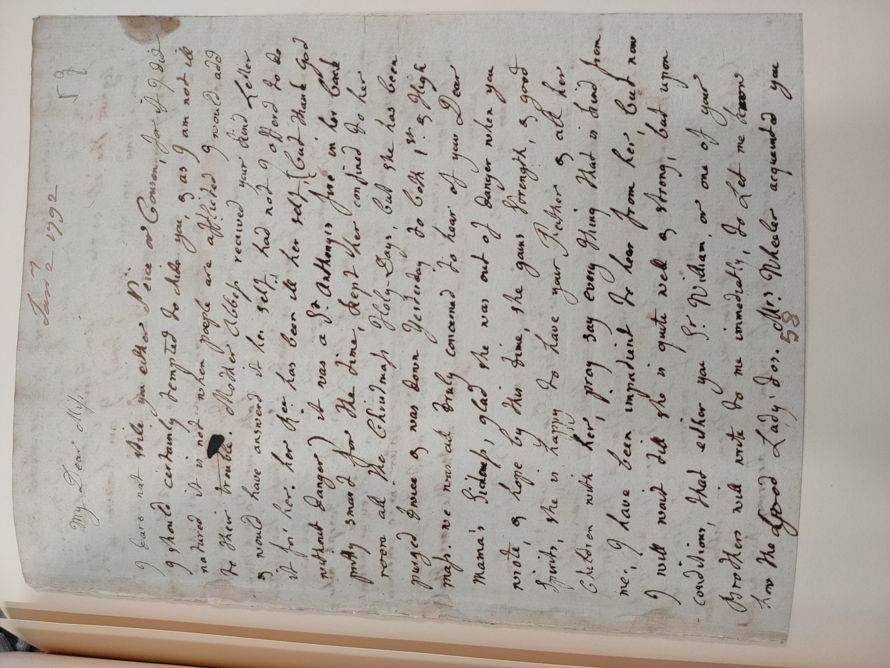 59
Jan 2 1792
My Dear Miss,
I dare not stile you either Neice or Cousen, for if I did
I should certainly tempted to chide you, & as I am not ill
natured it is not when people are afflicted I would add
to their trouble. Mother Abbess received your kind Letter
& would have answerd it her self had not I offerd to do
it for her. her Rce has been ill her self. (but thank God
without danger) it was a St. Anthonys fire in her back
pritty smart for the time, kept her confined to her
room all the Christmass Holy-Days, but she has been
purged twice & was down Yesterday to both 1st. & High
mass. we ware all truly concerned to hear of your Dear
Mama's Sidness, glad she was out of danger when you
wrote, & hope by this time, she gains strength, & good
Spirits, she is happy to have your Father & all her
Children with her, pray say every thing that is kind from
me, I have been impatient to hear from her, but now
I will wait till she is quite well & strong, but upon
condition, that either you Sr. William or one of your
Brothers will write to me immediatly, to Let me know
how the Good Lady, dos. Mrs Wheeler acquainted you
58